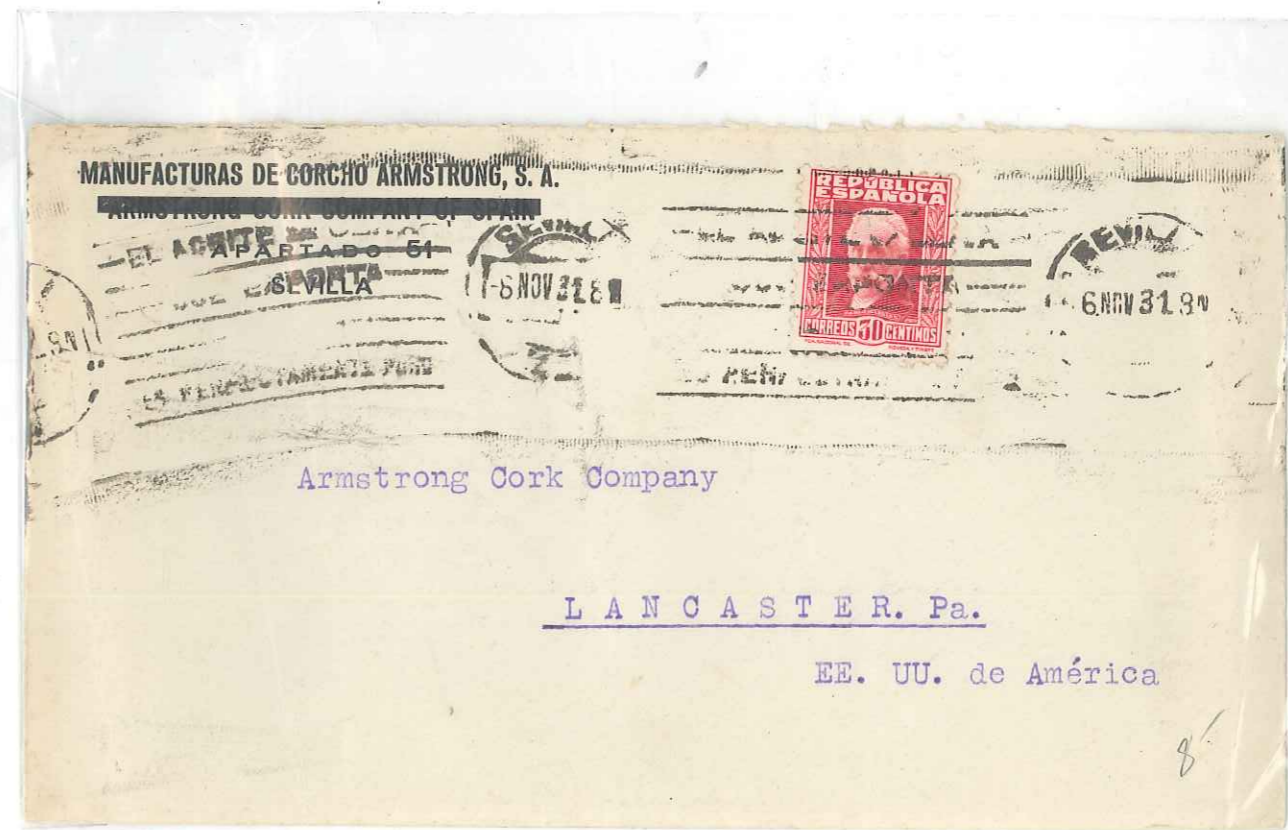 MANUFACTURAS DE CORCHO ARMSTRONG, S. A.
ARMSTRONG CORK COMPANY OF SPAIN
APARTADO 51
SEVILLA
EL ACEITE DE
QUE EXPORTA
ES PERFECTAMENTE PURO
SEVILLA
-6 NOV 31. 8
REPUBLICA
ESPAÑOLA
CORREOS 30 CENTIMOS
SEVILLA
6 NOV 31. 8N
8N
Armstrong Cork Company
LANCASTER. Pa.
EE. UU. de América
8